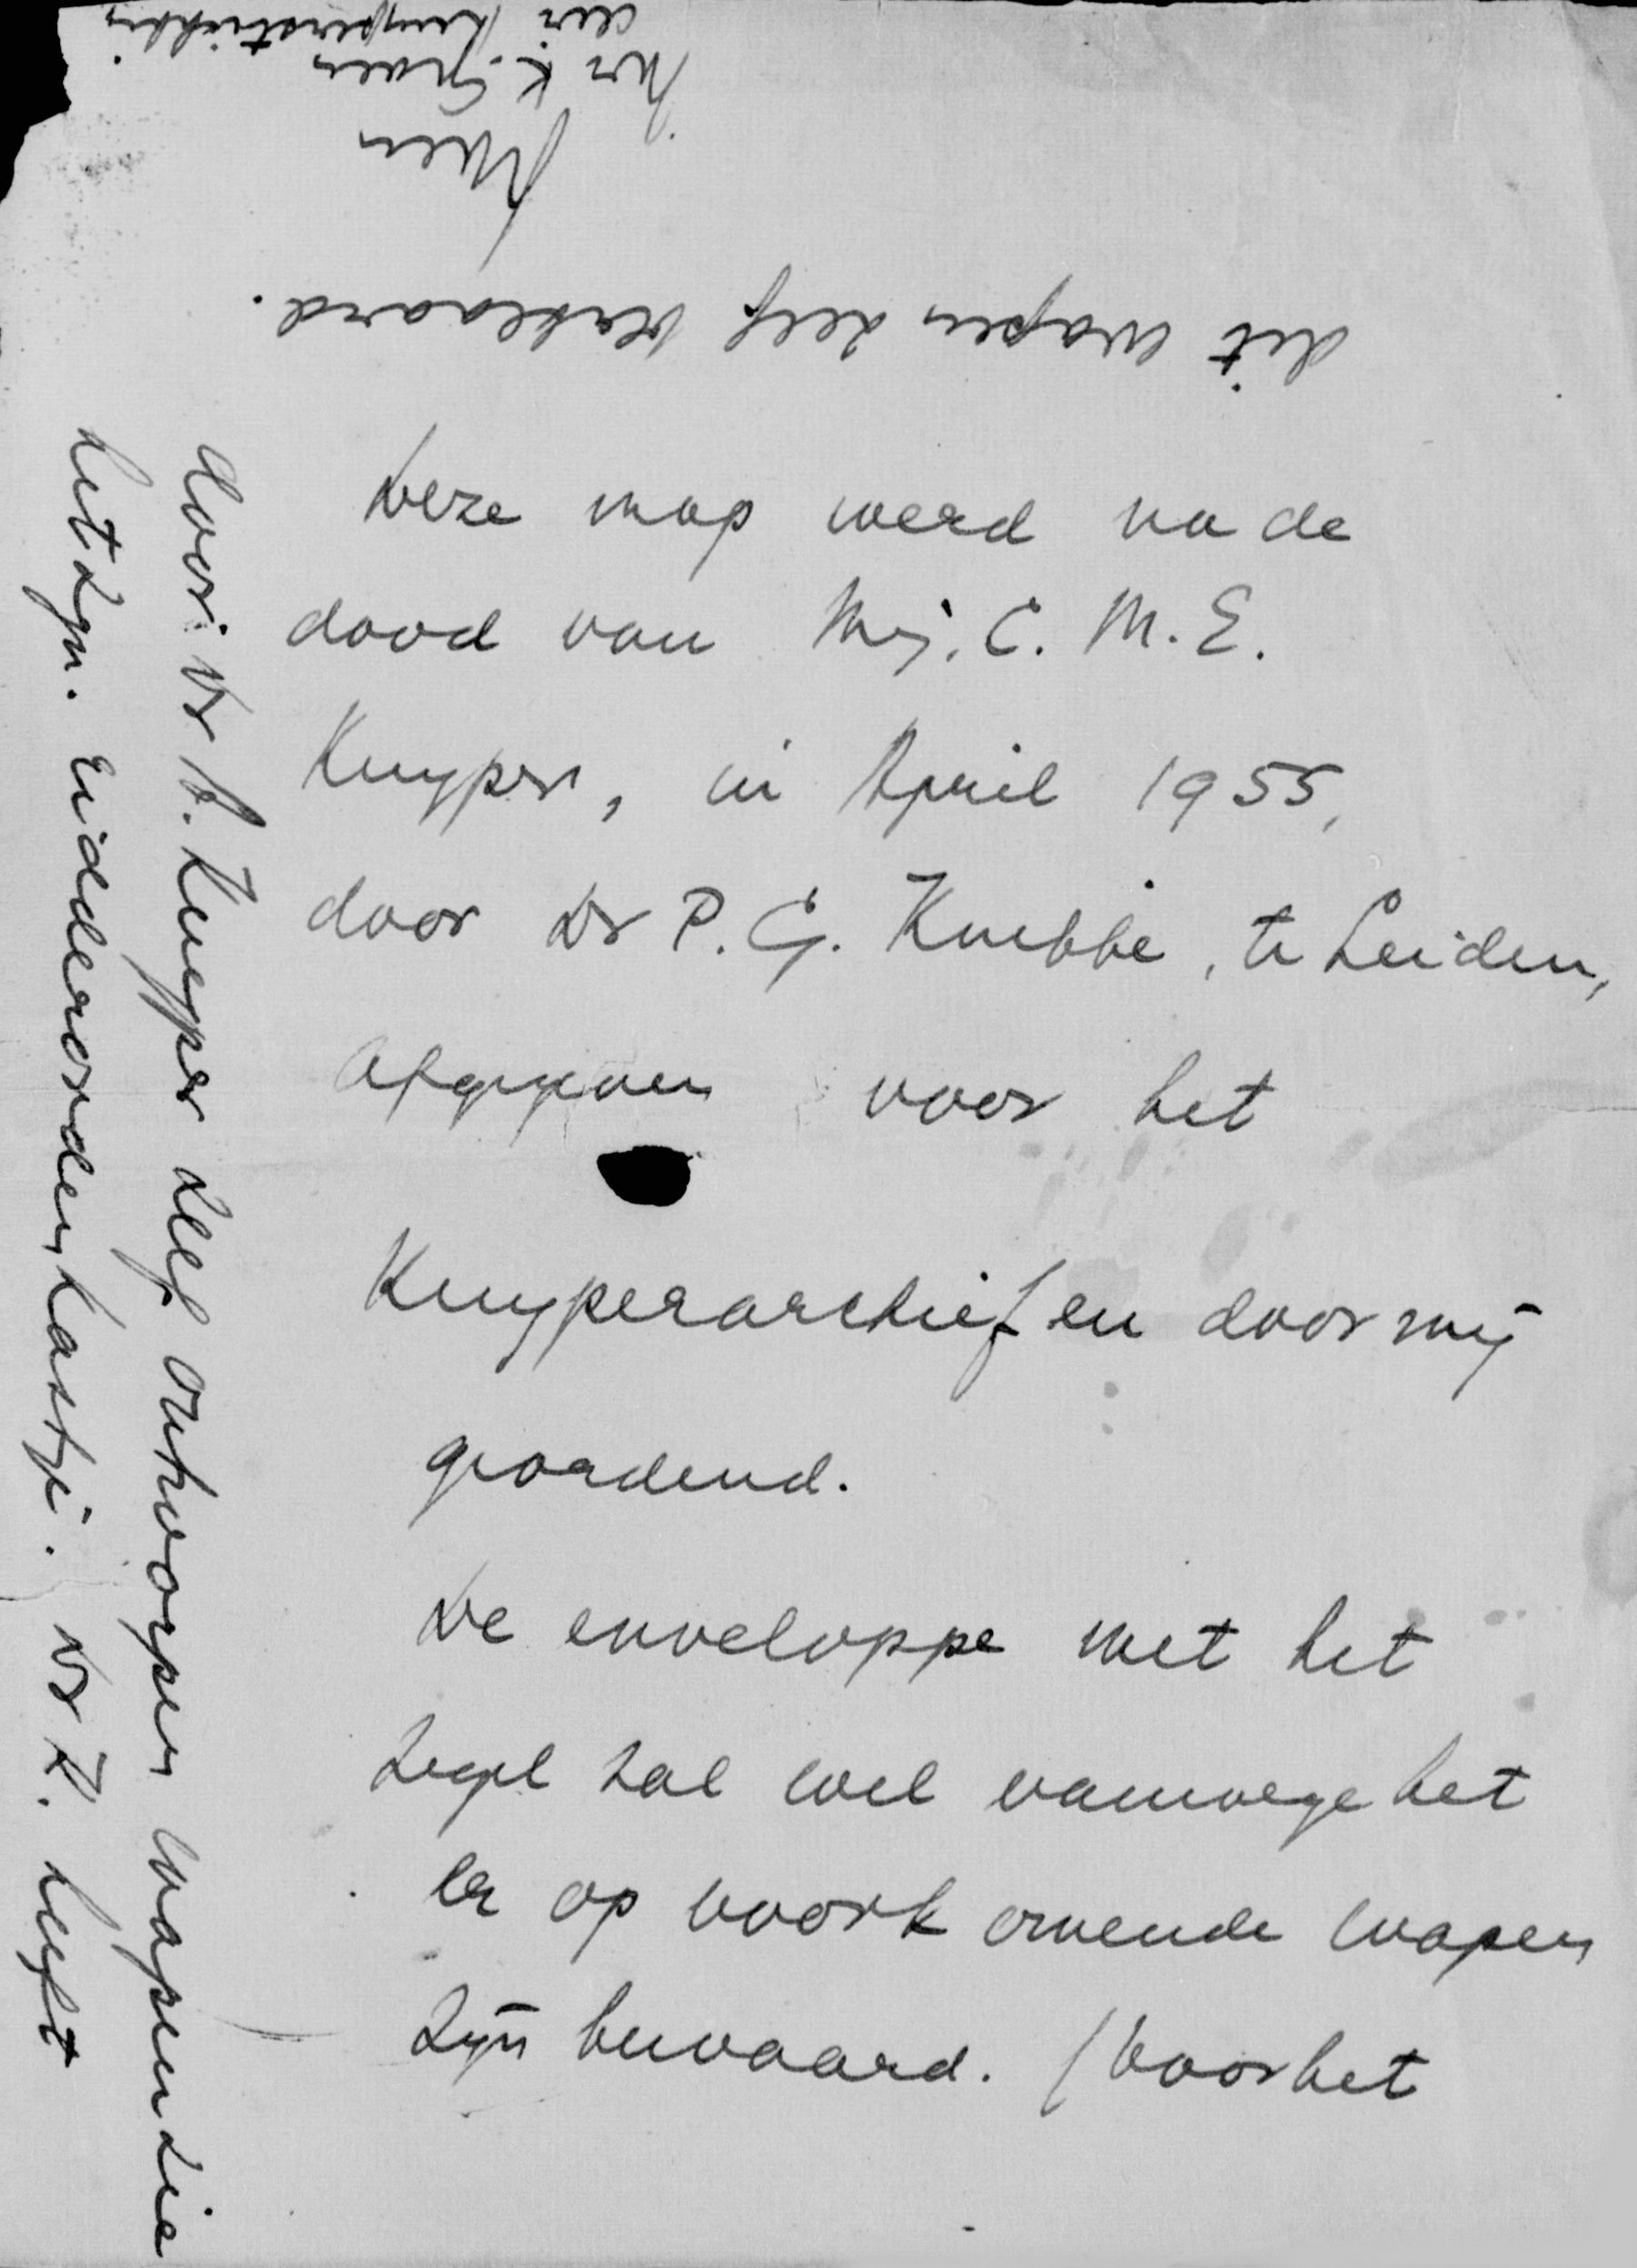 Deze map werd na de
dood van Mej. C. M. E.
Kuyper, in April 1955,
door Dr P. G. Knibbe, te Leiden,
afgegeven voor het
Kuyperarchief en door mij
geordend.
De enveloppe met het
zegel zal wel vanwege het
er op voorkomende wapen
zijn bewaard. (Voor het
door Dr A. Kuyper zelf ontworpen wapen zie
het zgn. ridderordenkastje. Dr K. heeft
dit wapen zelf verklaard.
Mr K. Groen
der Kuyperstichting